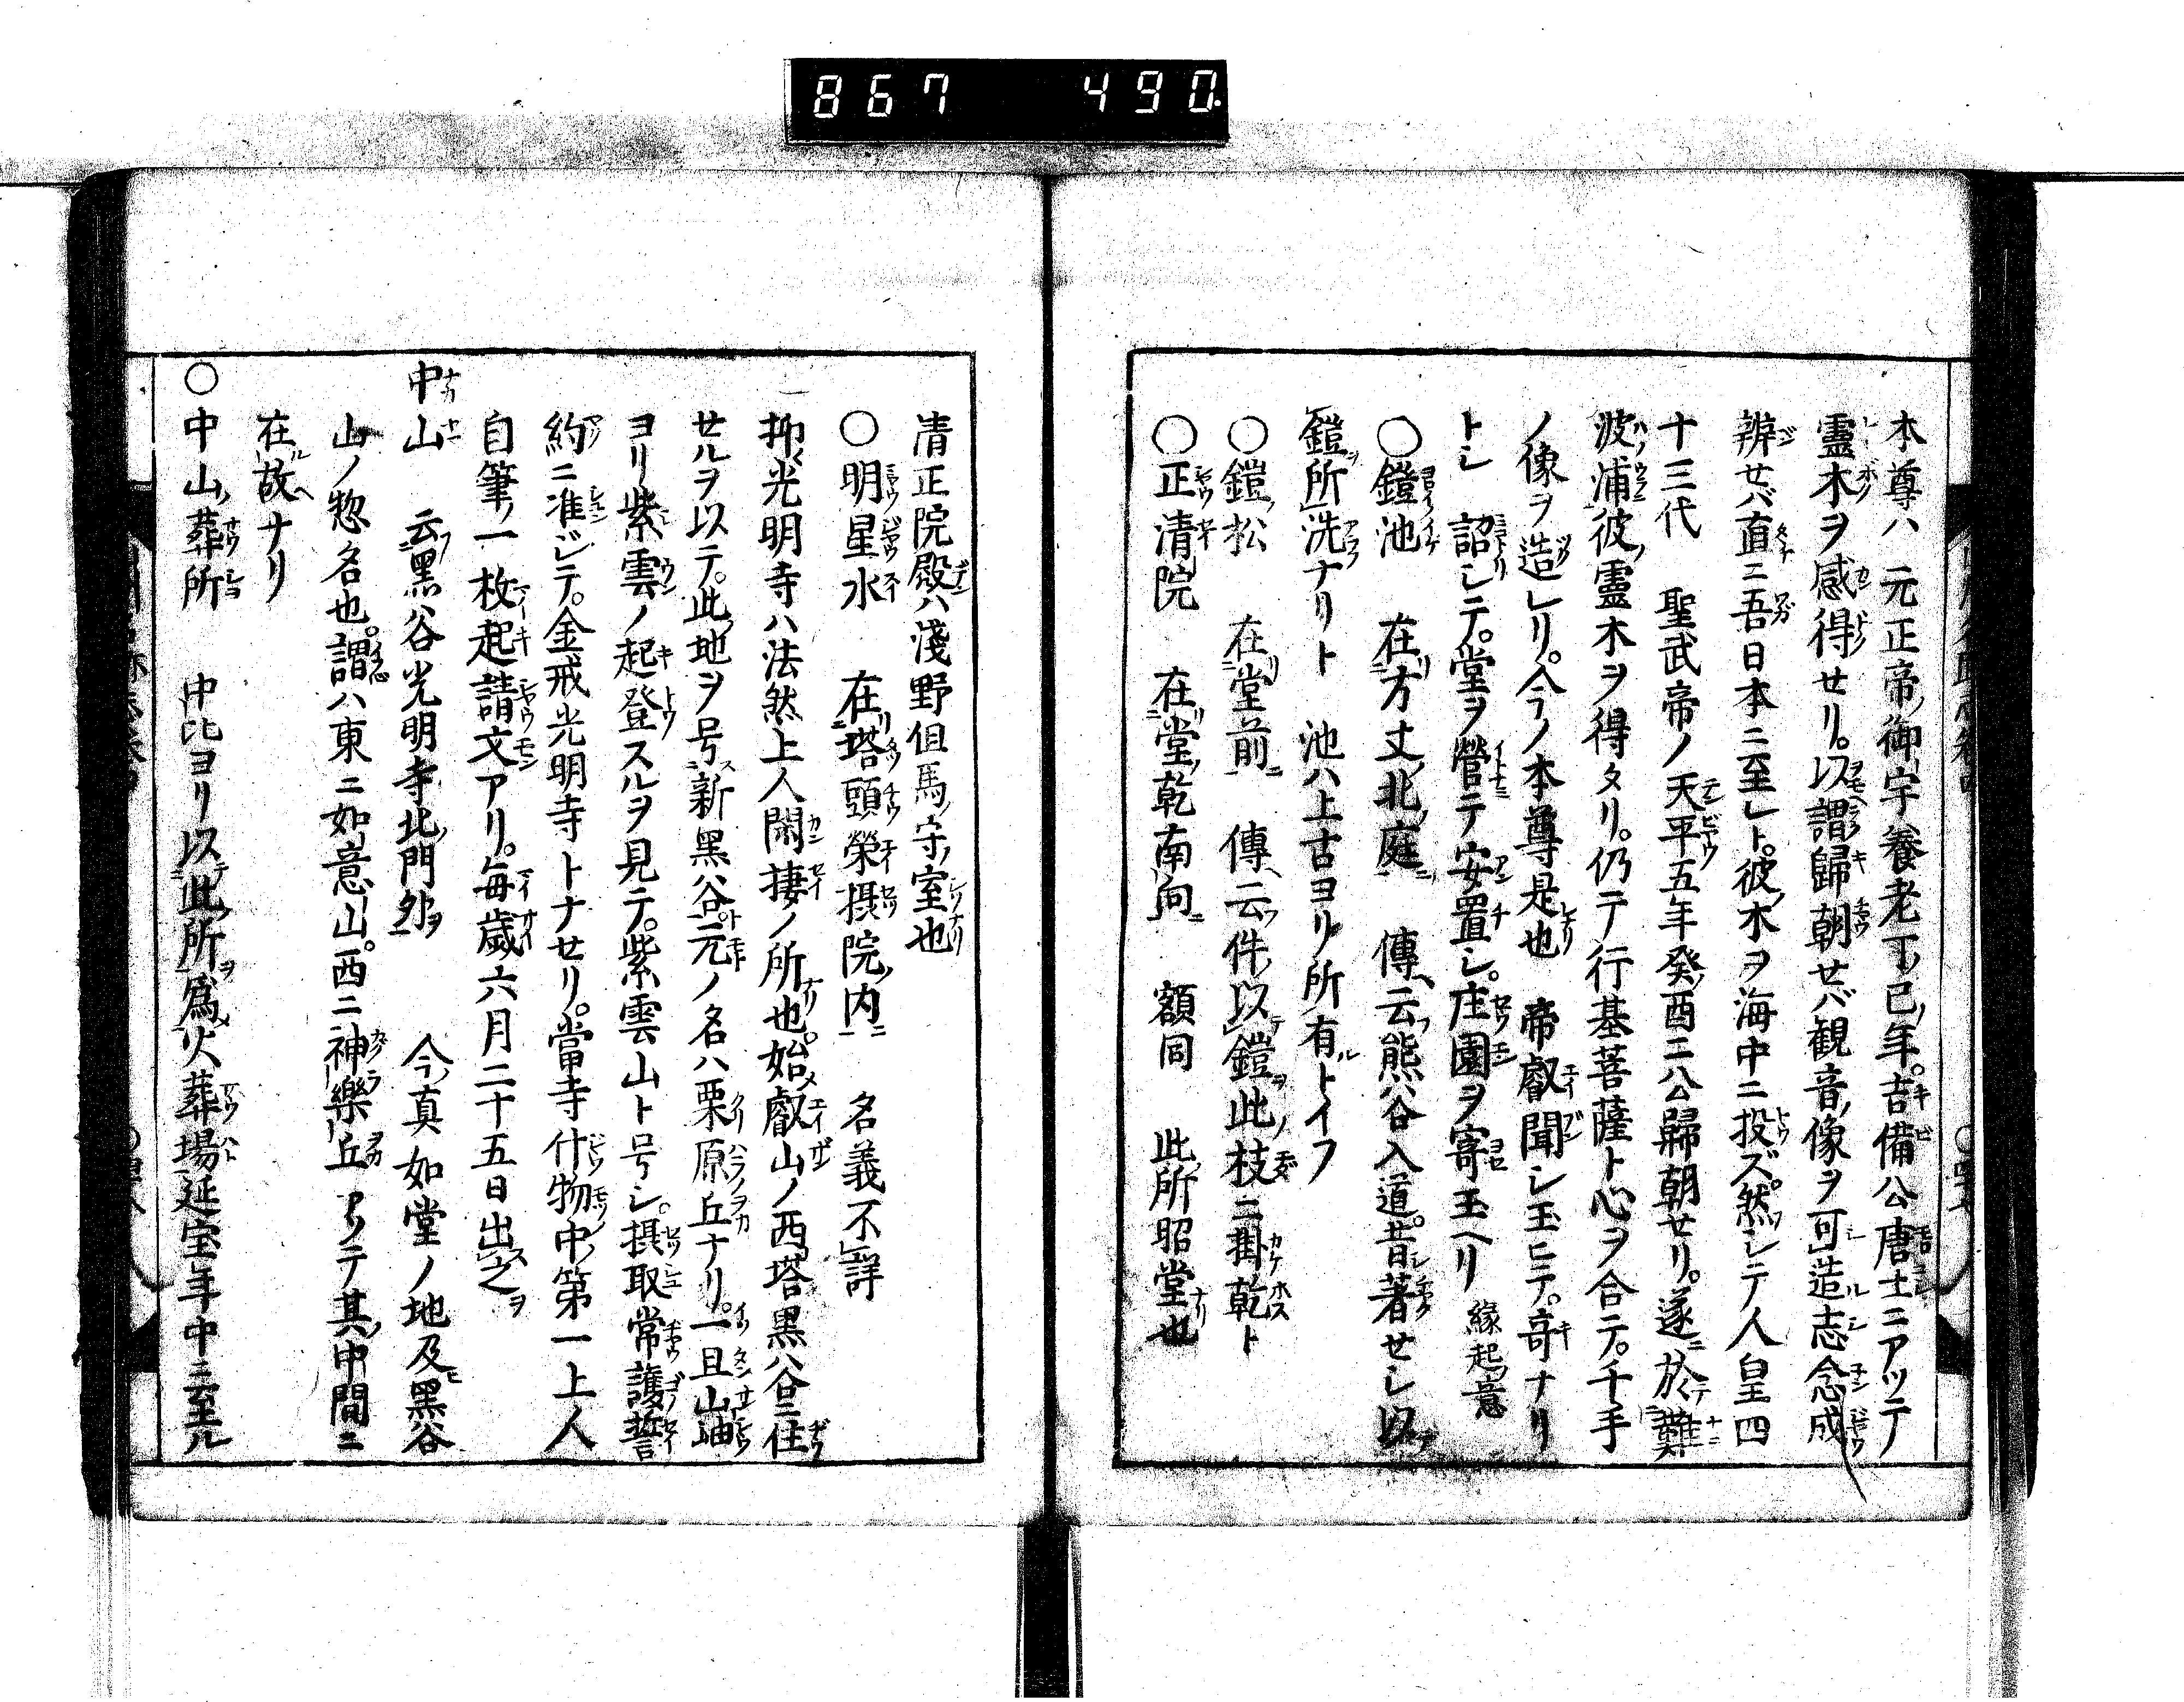 867 490
本尊ハ 元正帝ノ御宇養老丁ノ巳ノ年。吉備公唐土ニアツテ
靈木ヲ感得セリ。以謂歸朝セバ観音ノ像ヲ可造志念成
辨セバ直ニ吾日本ニ至レト。彼ノ木ヲ海中ニ投ズ。然シテ人皇四
十三代 聖武帝ノ天平五年癸ノ酉ニ公歸朝セリ。遂ニ於テ難
波ノ浦ニ彼ノ靈木ヲ得タリ。仍テ行基菩薩ト心ヲ合テ。千手
ノ像ヲ造レリ。今ノ本尊是也 帝叡聞シ玉ヒテ。奇ナリ
トシ 詔シテ。堂ヲ營テ安置シ。庄園ヲ寄玉ヘリ 緣起ノ意
○鎧池 在方丈ノ北ノ庭ニ 傳ヘ云フ熊谷入道。昔シ著セシ以テ
鎧ヲ所洗ナリト 池ハ上古ヨリ所有ルトイフ
○鎧ノ松 在堂ノ前ニ 傳ヘ云フ件ノ以鎧ヲ此ノ枝ニ掛乾ト
○正清院 在堂ノ乾南向ニ 額同 此ノ所昭堂也
清正院殿ハ淺野但馬ノ守ノ室也
○明星水 在塔頭榮摂院ノ内ニ 名義不詳
抑〻光明寺ハ法然上人閑捿ノ所也。始メ叡山ノ西塔黒谷ニ住
セルヲ以テ。此ノ地ヲ号ス新黒谷ト。元ノ名ハ栗原丘ナリ。一旦山岫
ヨリ紫雲ノ起登スルヲ見テ。紫雲山ト号シ。摂取常護誓
約ニ准ジテ。金戒光明寺トナセリ。當寺什物ノ中ノ第一上人
自筆ノ一枚起請文アリ。毎歲六月二十五日出ス之ヲ
中山 云フ黒谷光明寺ノ北ノ門外ヲ 今ノ真如堂ノ地及ヒ黒谷
山ノ惣名也。謂ハ東ニ如意山。西ニ神樂丘アツテ其ノ中間ニ
在ル故ヘナリ
○中山ノ葬所 中比ヨリ以テ此ノ所ヲ爲火葬場延宝年中ニ至ル